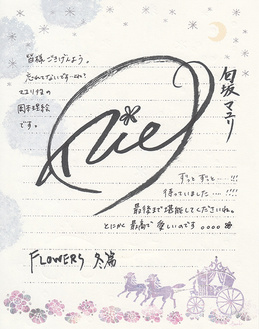 匂坂マユリ
皆様ごきげんよう。
忘れてないですーわ?
マユリ役の
岡本理絵
です。
Rie
ずっと ずっと ‥‥!!!
待っていました‥‥!!!!
最後まで堪能してくださいね。
とにかく最高で愛しいのです。。。。
FLOWERS 冬篇